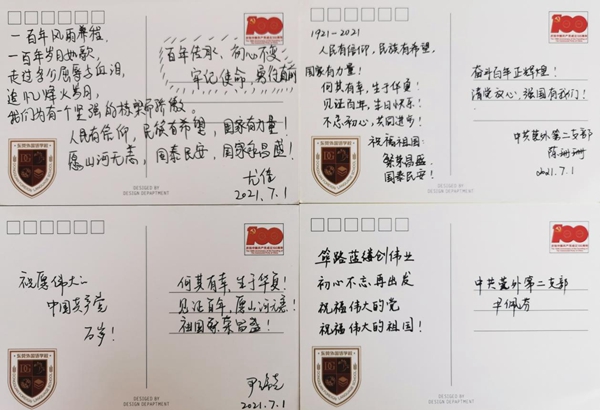 一百年风雨兼程,
一百年岁月如歌
走过多少屈辱与血泪,
追忆烽火岁月,
我们为有个坚强的栋梁而骄傲
百年传承、初心不变
牢记使命,勇往直前
人民有信仰,民族有希望,国家有力量!
愿山河无恙,国泰民安,国家永昌盛!
2021.7.1
DESIGNED BY
DESIGN DEPARTMENT
100
1921-2021
人民有信仰,民族有希望,
国家有力量!
何其有幸,生于华夏!
见证百年,生日快乐!
不忘初心,共同进步!
祝福祖国:
繁荣昌盛
国泰民安!
奋斗百年正辉煌!
请党放心,强国有我们!
中共莞外第二支部
陈珊珊
2021.7.1
DESIGNED BY
DESIGN DEPARTMENT
100
祝愿伟大的
中国共产党
万岁!
何其有幸,生于华夏!
见证百年,愿山河无恙!
祖国繁荣昌盛!
2021.7.1
DESIGNED BY
DESIGN DEPARTMENT
100
筚路蓝缕创伟业
初心不忘再出发
祝福伟大的党
祝福伟大的祖国!
中共莞外第二支部
尹佩芬
DESIGNED BY
DESIGN DEPARTMENT
100